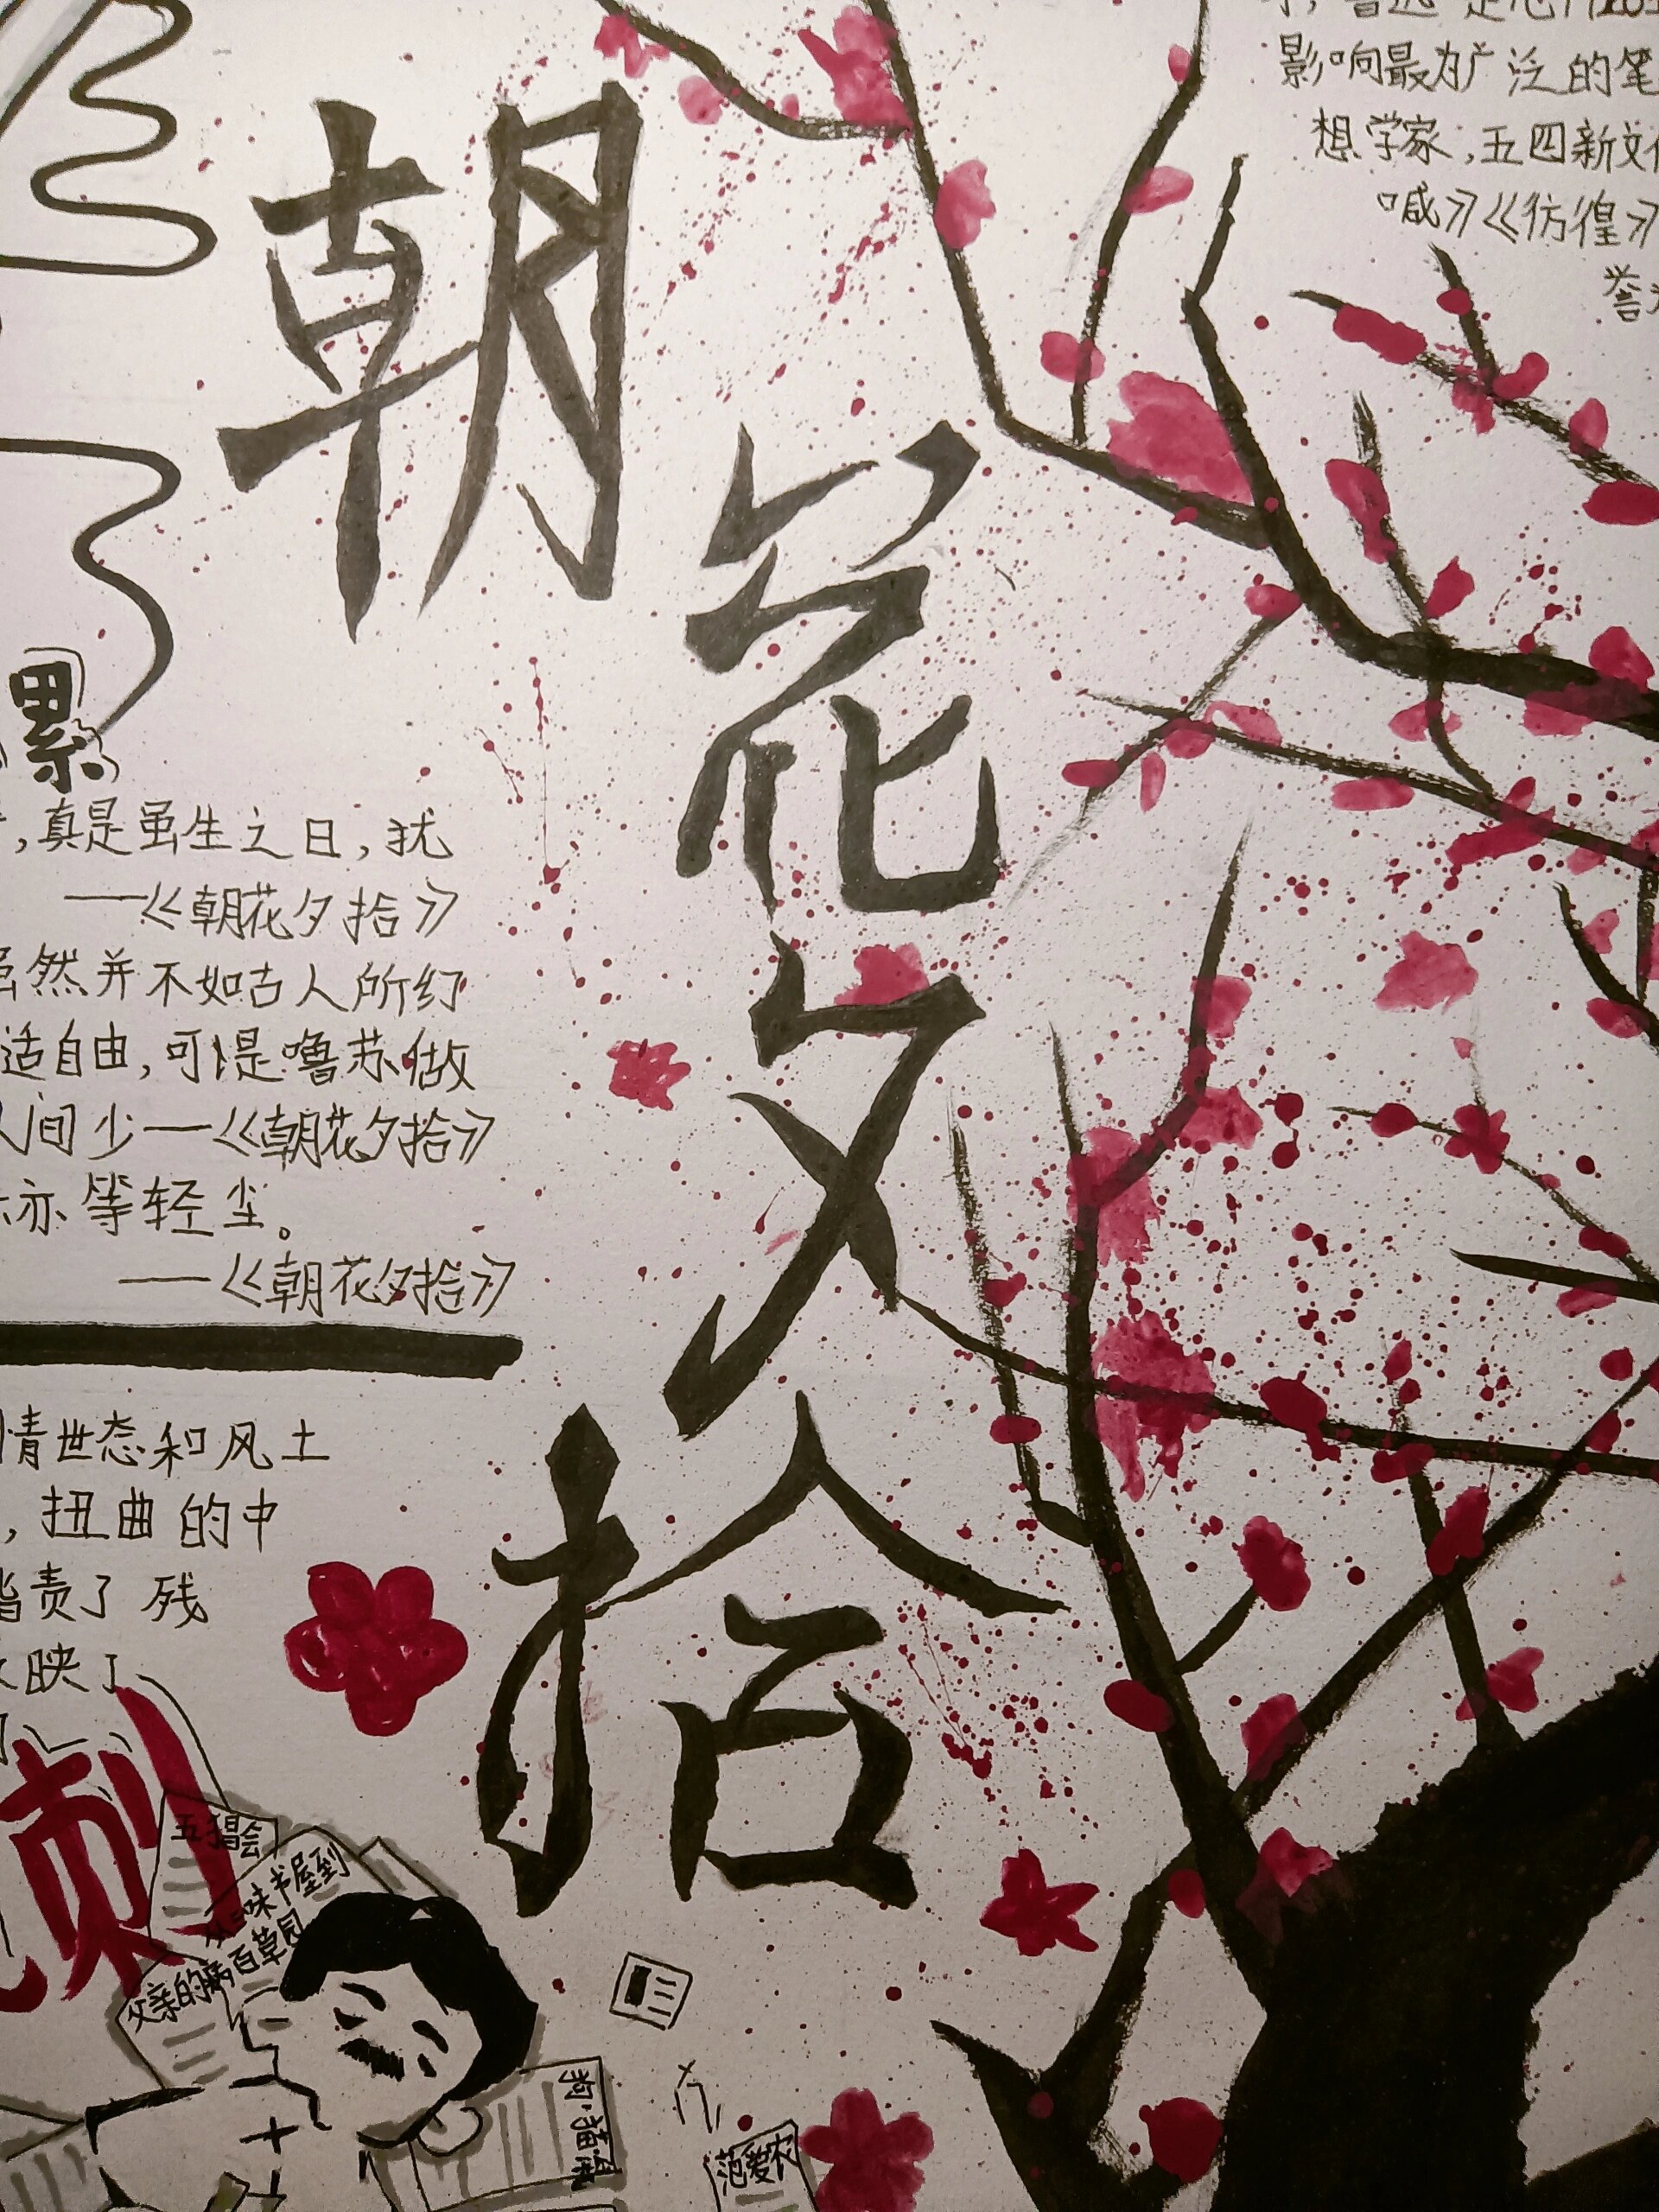 朝花夕拾
影响最为广泛的笔
想学家，五四新文
喊》《彷徨》
誉
累
，真是虽生之日，犹
——《朝花夕拾》
然并不如古人所幻
适自由，可是噜苏做
人间少——《朝花夕拾》
亦等轻尘。
——《朝花夕拾》
情世态和风土
，扭曲的中
责了残
映了
刺
五猖会
从三味书屋到
百草园
父亲的病
狗·猫·鼠
范爱农